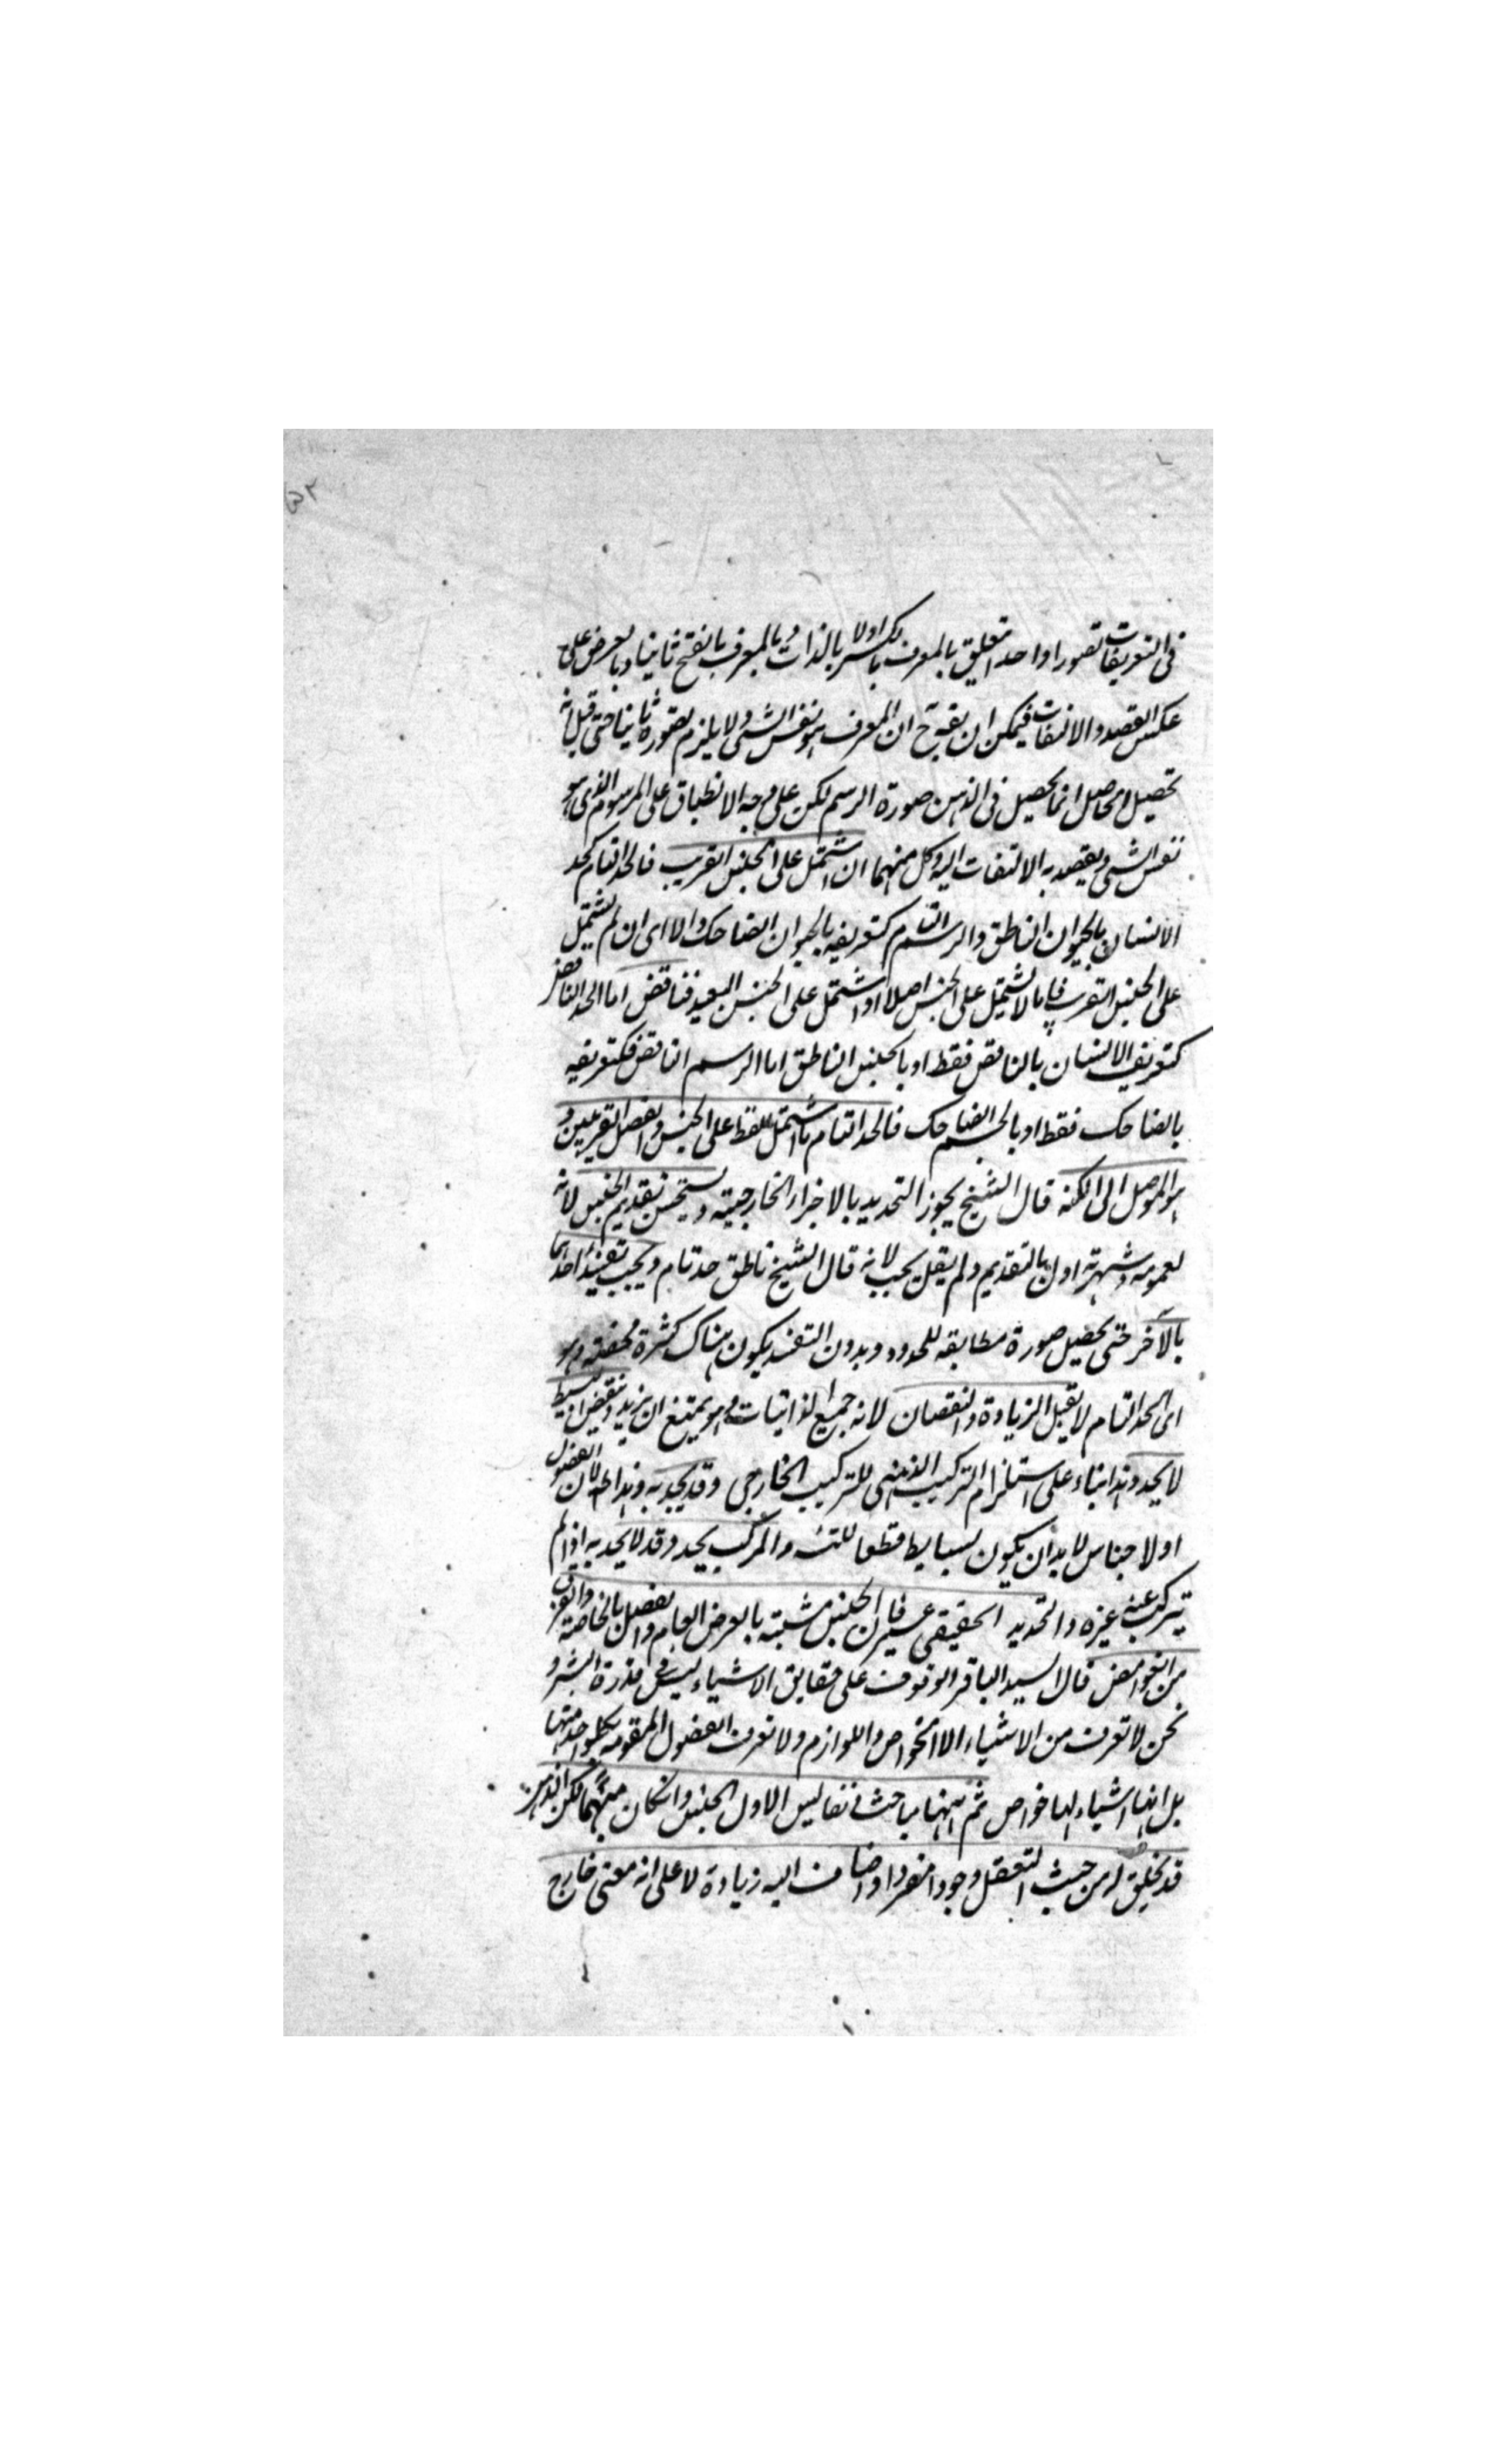 في التعريفات تصورا واحدا متعلق بالمعرف بالكسر اولا بالذات وبالمعرف بالفتح ثانيا وبالعرض على
عكس القصد والالتفات فيمكن ان يقدح ان المعرف هو نفس الشي ولا يلزم تصوره ثانيا حتى قيل انه
تحصيل الحاصل انما يحصل في الذهن صورة الرسم لكن على وجه الانطباق على المرسوم الذي هو
نفس الشي ويقصد به الالتفات اليه وكل منهما ان اشتمل على الجنس القريب فالحد التام كحد
الانسان بالحيوان الناطق والرسم التام كتعريفه بالحيوان الضاحك والا اى ان لم يشتمل
على الجنس القريب فاما لا يشتمل على الجنس اصلا او اشتمل على الجنس البعيد فناقص اما الحد الناقص
كتعريف الانسان بالناقص فقط او بالجنس الناطق اما الرسم الناقص فكتعريفه
بالضاحك فقط او بالجسم الضاحك فالحد التام ما اشتمل فقط على الجنس والفصل القريبين و
هو الموصل الى الكنه قال الشيخ يجوز التحديد بالاجزاء الخارجية ويستحسن تقديم الجنس لانه
لعمومه وشهرته اولى بالتقديم ولم يقل يجب لانه قال الشيخ ناطق حد تام ويجب تقييد احدهما
بالآخر حتى يحصل صورة مطابقه للمحدود وبدون التقييد يكون هناك كثرة محضة وهو
اى الحد التام لا يقبل الزيادة والنقصان لانه جميع الذاتيات وهو يمتنع ان يزيد وينقص والبسيط
لا يحد وهذا بناء على استلزام التركيب الذهني للتركيب الخارجي وقد يحد به وهذا لان الفصول
اولاجناس لا بد ان يكون بسايط قطعا للتسـ والمركب يحد وقد لا يحد به اذا لم
يتركب عنه غيره والتحديد الحقيقي عسير فان الجنس مشتبه بالعرض العام والفصل بالخاصة والفرق
من الغوامض قال السيد الباقر الوقوف على حقايق الاشياء ليس في قدرة البشر و
نحن لا نعرف من الاشياء الا الخواص واللوازم ولا نعرف الفصول المقومه لكل واحد منها
بل انها اشياء لها خواص ثم ههنا مباحث نفايس الاول الجنس وان كان مبهما لكن الذهن
قد يخلق له من حيث التعقل وجودا منفردا واضاف اليه زيادة لا على انه معنى خارج